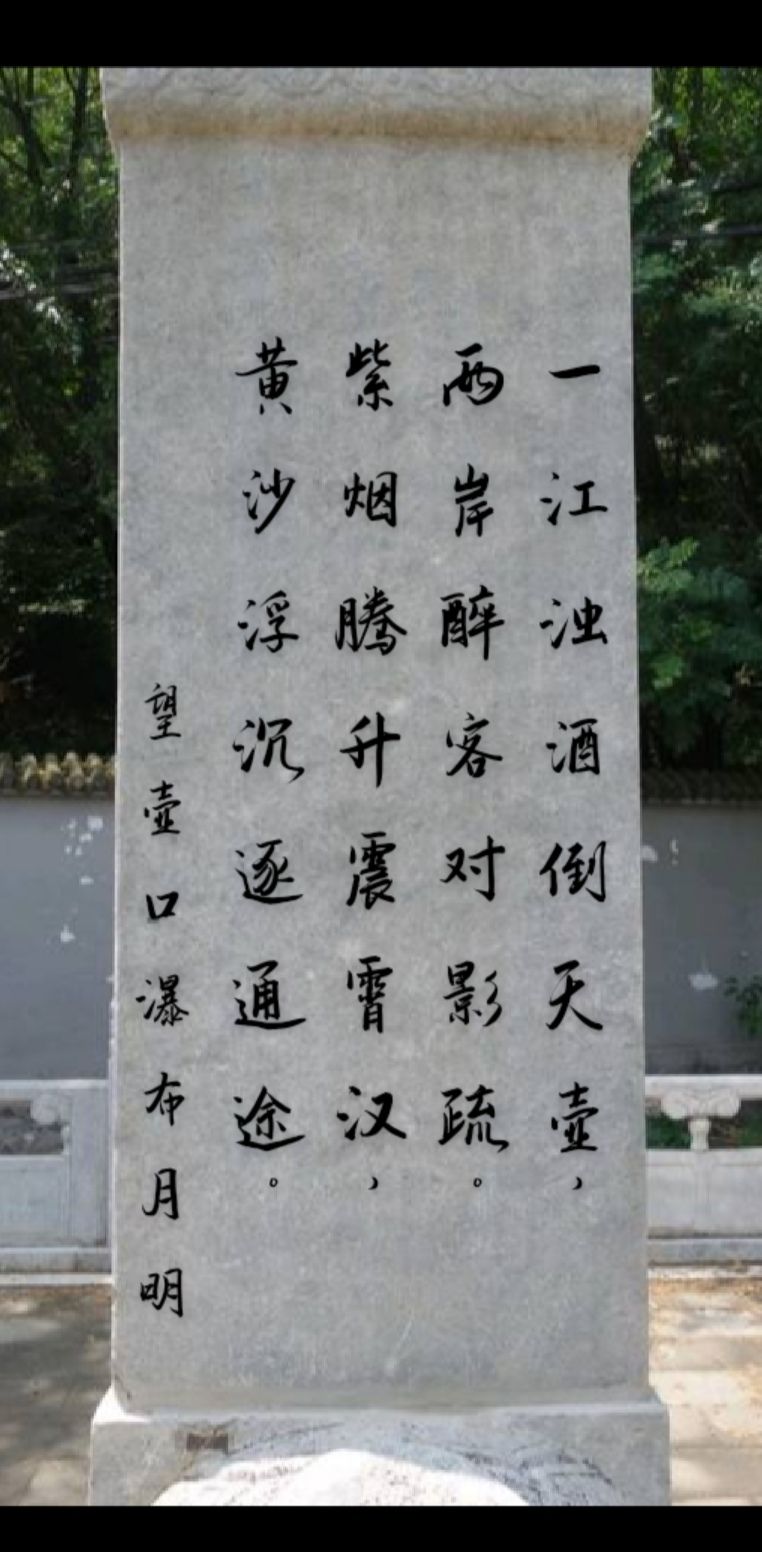 一江浊酒倒天壶，
两岸醉客对影疏。
紫烟腾升震霄汉，
黄沙浮沉逐通途。
望壶口瀑布月明